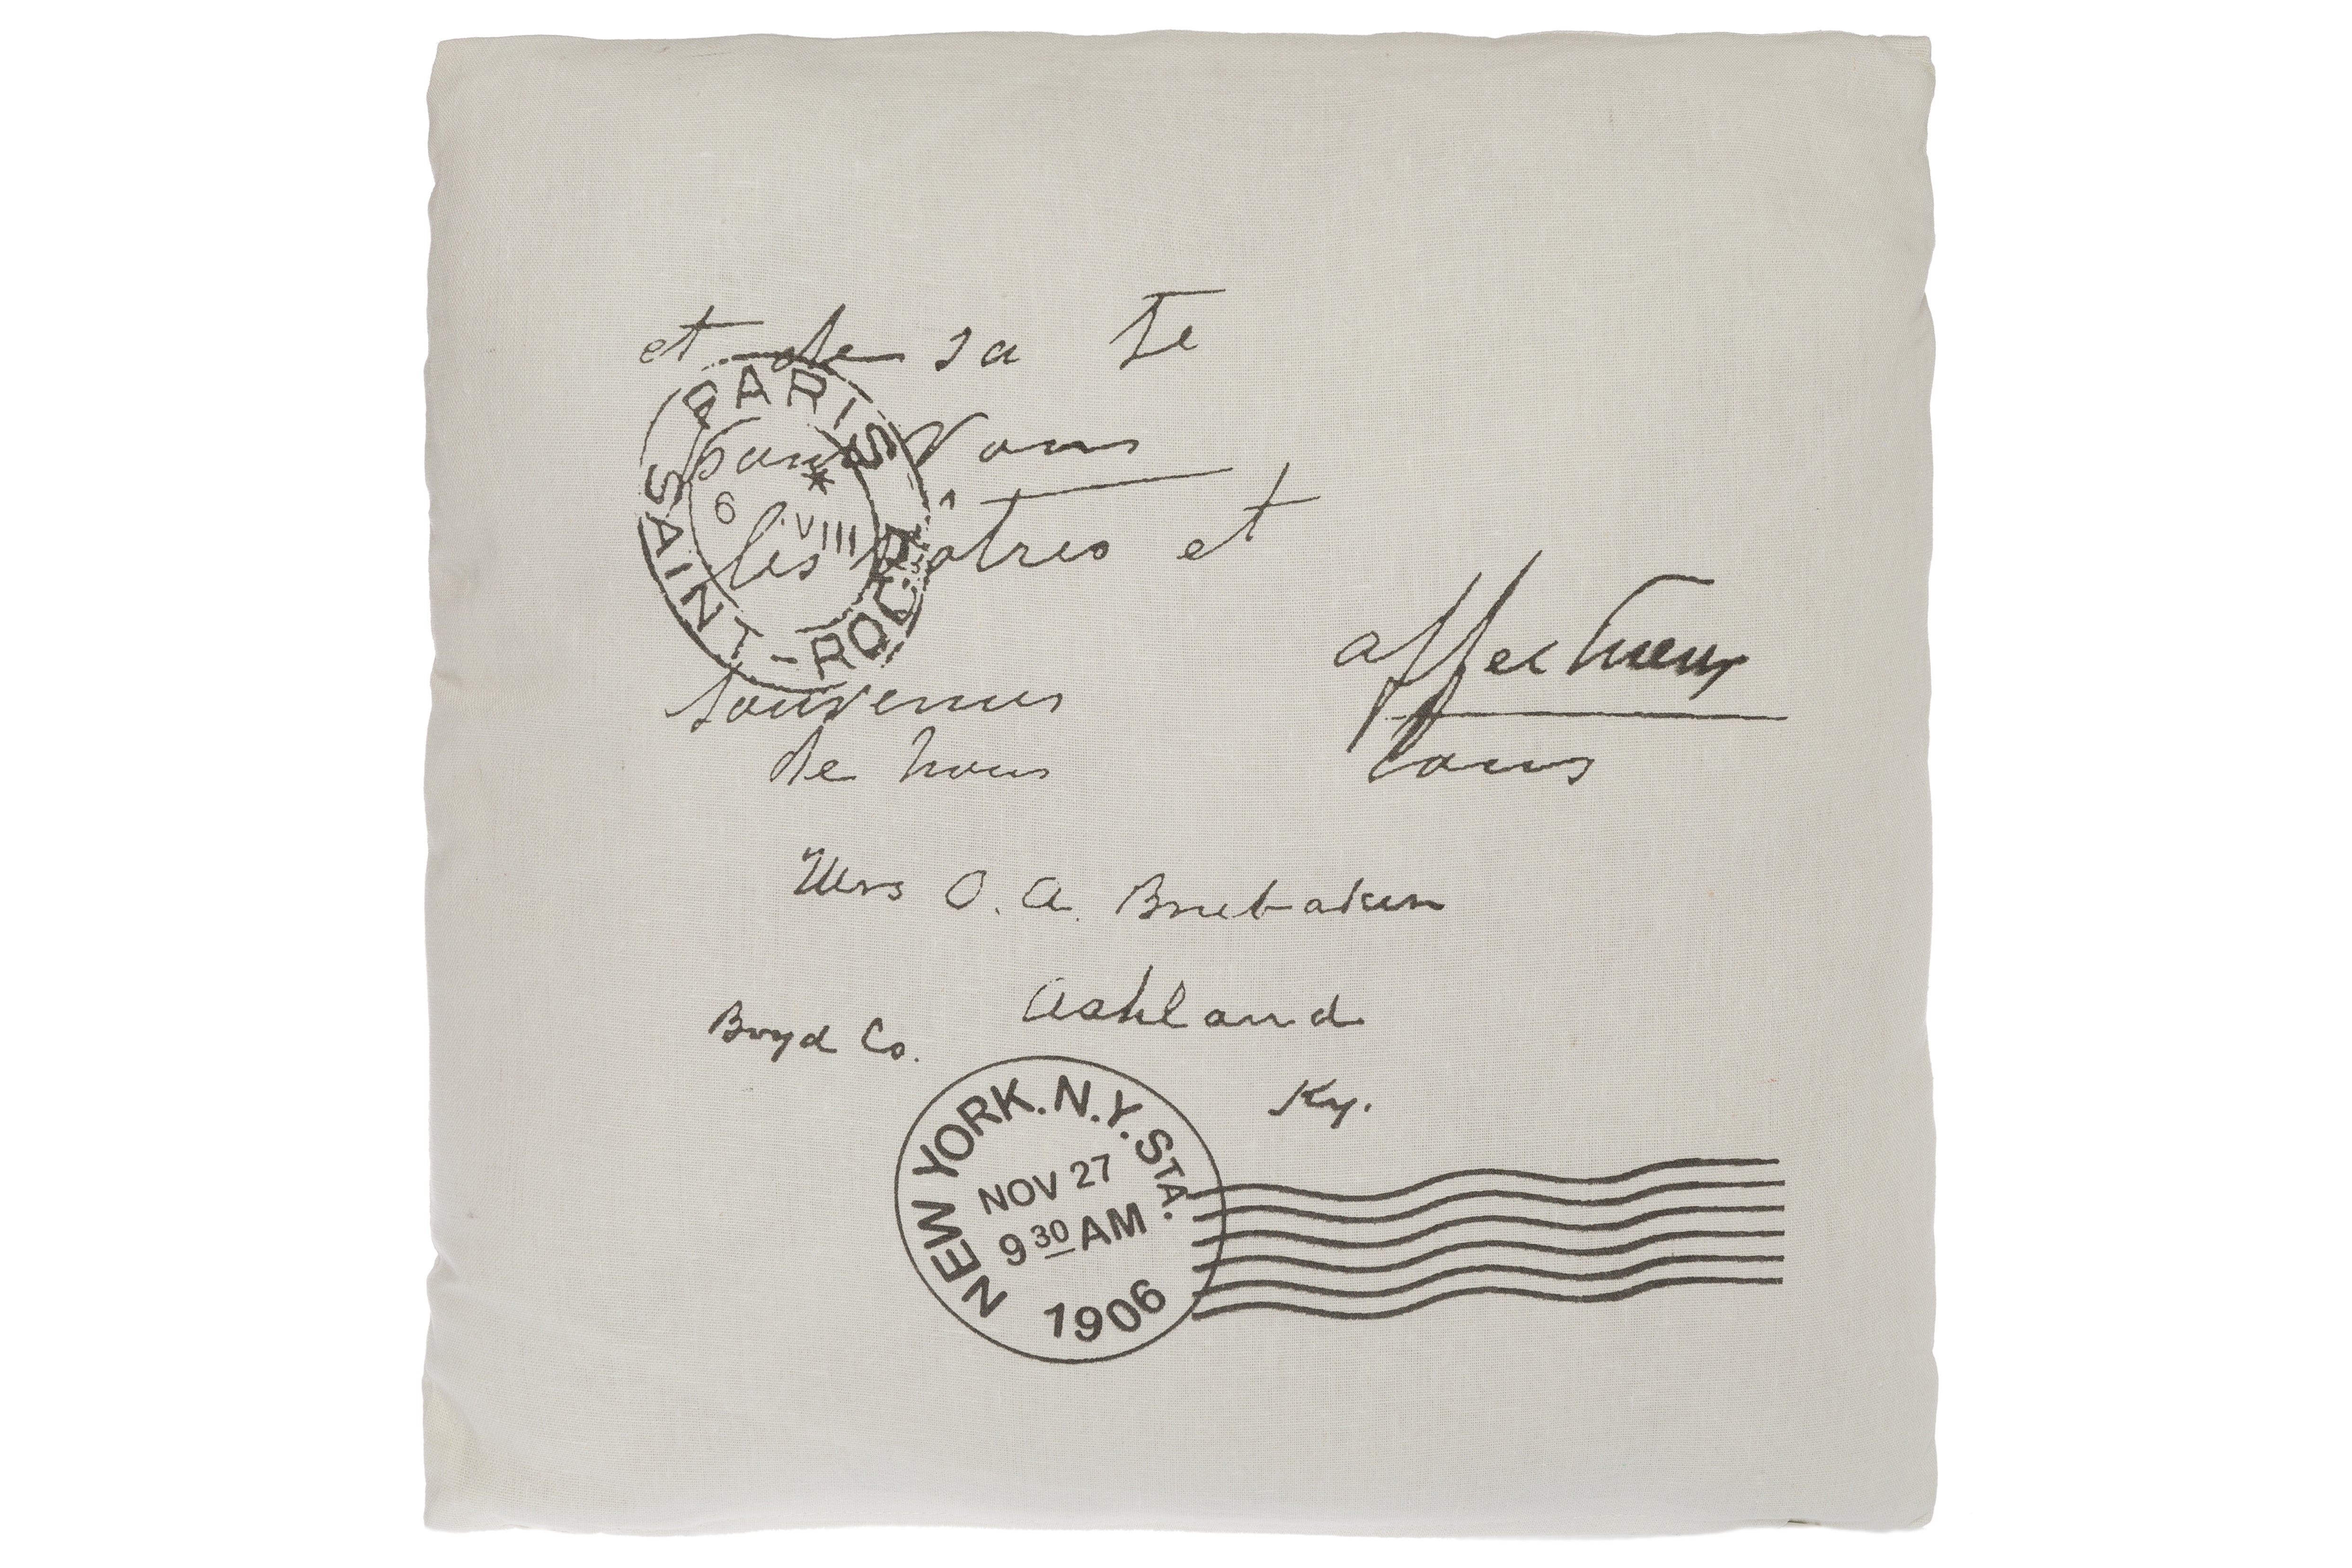 et de sa Te
PARIS * SAINT-ROCH
pour Vous
6 VIII
les vôtres et
affectueux
souvenirs
de nous tous
Mrs O. A. Brubaker
Ashland
Boyd Co.
Ky.
NEW YORK. N.Y. STA.
NOV 27
9 30 AM
1906